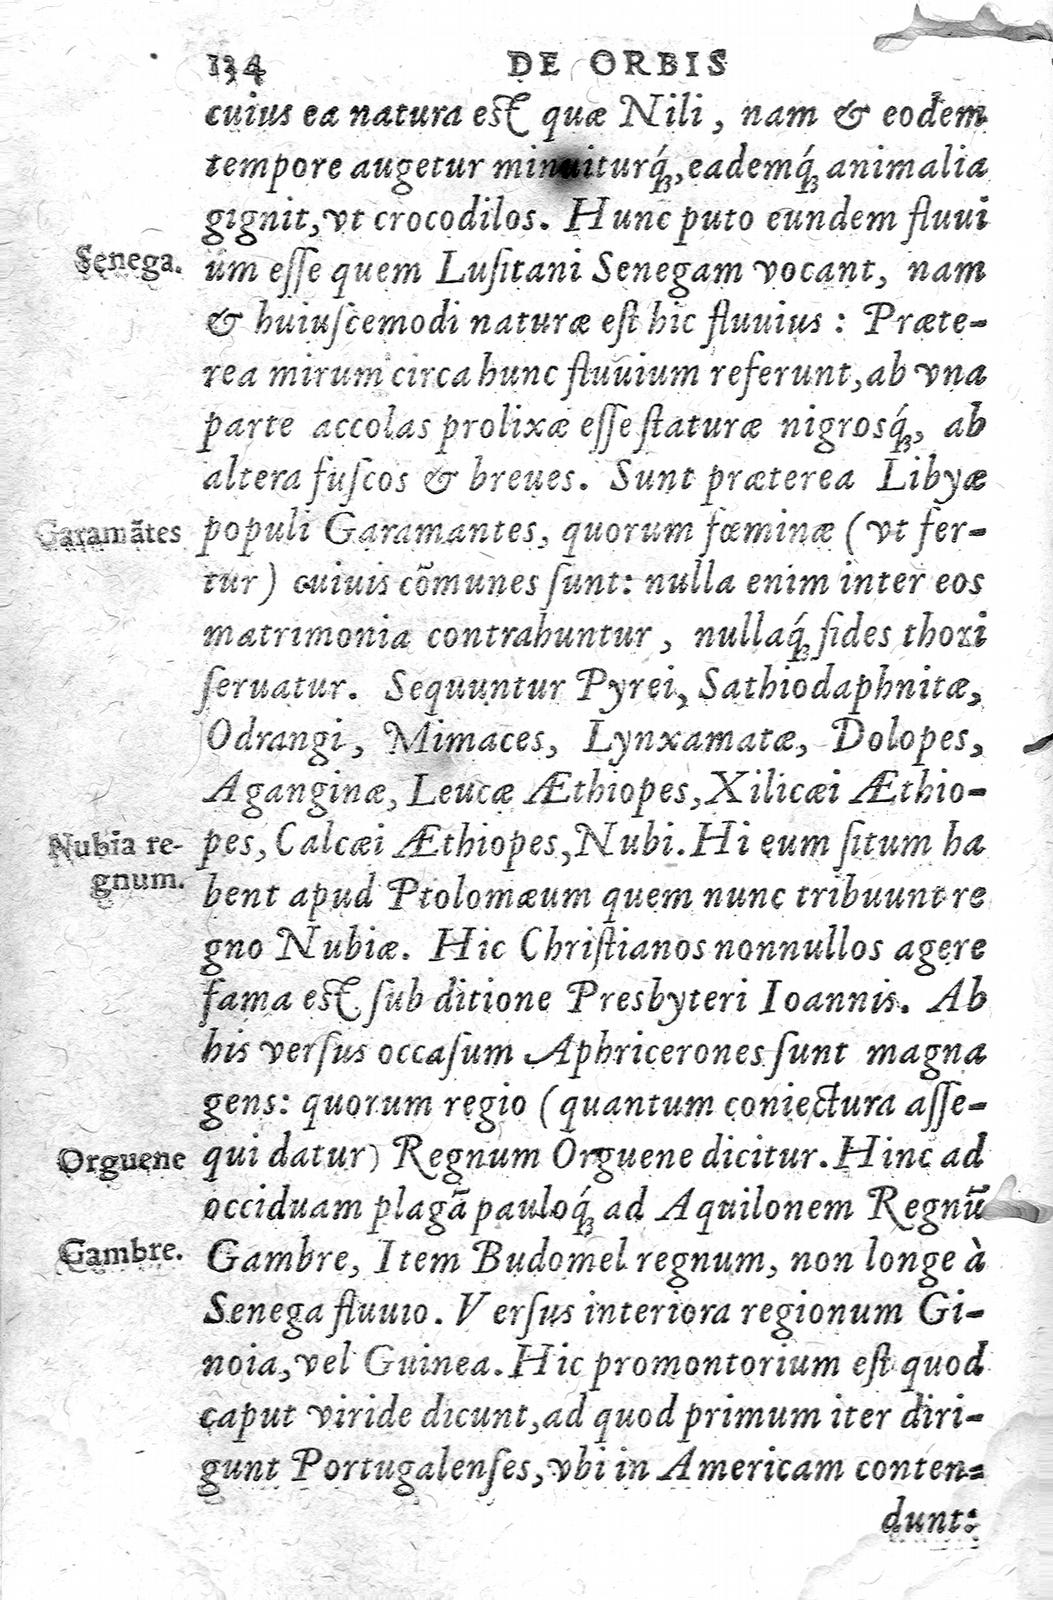 134 DE ORBIS
cuius ea natura est quæ Nili, nam & eodem
tempore augetur minuiturq́ꝫ, eademq́ꝫ animalia
gignit, vt crocodilos. Hunc puto eundem fluui
Senega.
um eſſe quem Luſitani Senegam vocant, nam
& huiuſcemodi naturæ eſt hic fluuius : Præte-
rea mirum circa hunc fluuium referunt, ab vna
parte accolas prolixæ eſſe ſtaturæ nigrosq́ꝫ, ab
altera fuſcos & breues. Sunt præterea Libyæ
Garamãtes
populi Garamantes, quorum fœminæ (vt fer-
tur) cuiuis cõmunes ſunt: nulla enim inter eos
matrimonia contrahuntur, nullaq́ꝫ fides thori
ſeruatur. Sequuntur Pyrei, Sathiodaphnitæ,
Odrangi, Mimaces, Lynxamatæ, Dolopes,
Aganginæ, Leucæ Æthiopes, Xilicæi Æthio-
Nubia re-
pes, Calcæi Æthiopes, Nubi. Hi eum ſitum ha
gnum.
bent apud Ptolomæum quem nunc tribuunt re
gno Nubiæ. Hic Chriſtianos nonnullos agere
fama est ſub ditione Presbyteri Ioannis. Ab
his verſus occaſum Aphricerones ſunt magna
gens: quorum regio (quantum coniectura aſſe-
Orguene
qui datur) Regnum Orguene dicitur. Hinc ad
occiduam plagã pauloq́ꝫ ad Aquilonem Regnũ
Gambre.
Gambre, Item Budomel regnum, non longe à
Senega fluuio. Verſus interiora regionum Gi-
noia, vel Guinea. Hic promontorium eſt quod
caput viride dicunt, ad quod primum iter diri-
gunt Portugalenſes, vbi in Americam conten-
dunt: